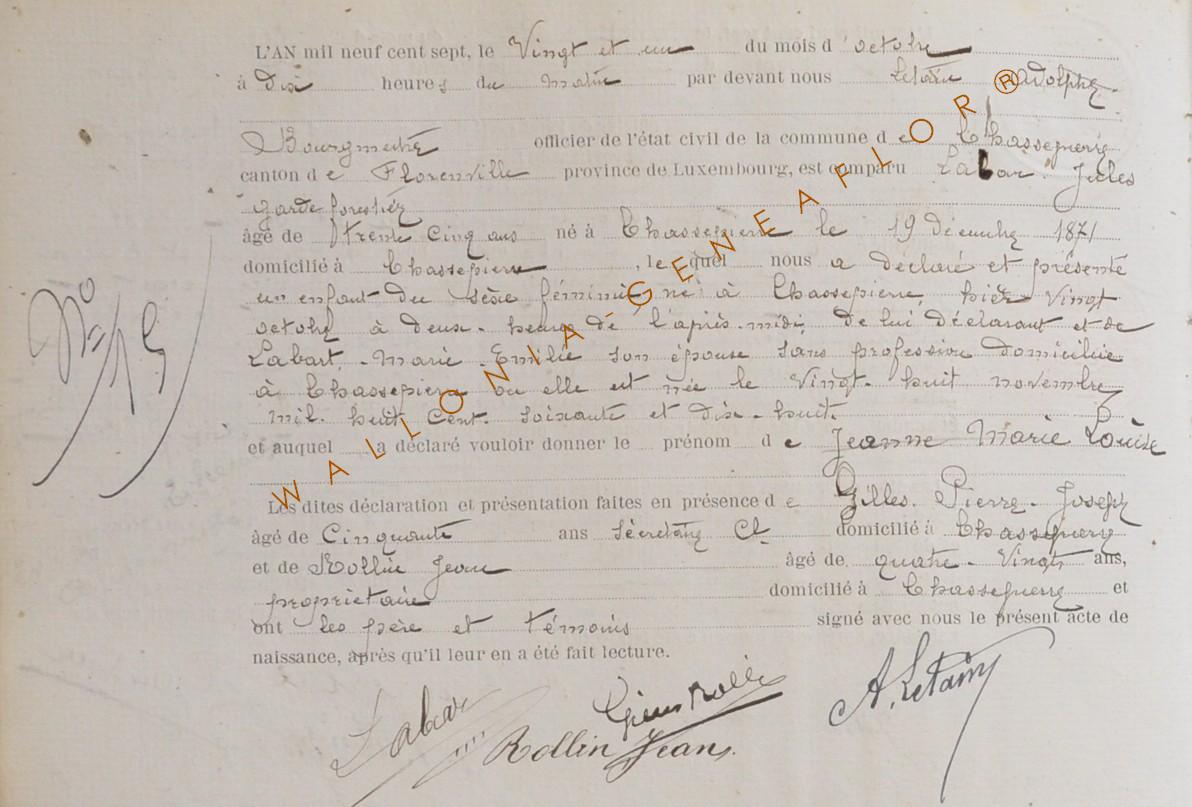 L'AN mil neuf cent sept, le Vingt et un du mois d'octobre
à Dix heures du matin par devant nous Letain Adolphe
Bourgmestre officier de l'état civil de la commune de Chassepierre
canton de Florenville province de Luxembourg, est comparu Labar Jules
garde forestier
âgé de trente cinq ans né à Chassepierre le 19 Décembre 1871
domicilié à Chassepierre, lequel nous a déclaré et présenté
un enfant du sèxe féminin né à Chassepierre, hier Vingt
octobre à deux heures de l'après-midi, de lui déclarant et de
Labart Marie Emilie son épouse sans profession domiciliée
à Chassepierre ou elle est née le Vingt-huit novembre
mil huit Cent soixante et dix-huit.
et auquel a déclaré vouloir donner le prénom de Jeanne Marie Louise
Les dites déclaration et présentation faites en présence de Gilles Pierre-Joseph
âgé de Cinquante ans Secrétaire Cl domicilié à Chassepierre
et de Rollin Jean âgé de quatre-Vingt ans,
propriétaire domicilié à Chassepierre et
ont les père et témoins signé avec nous le présent acte de
naissance, après qu'il leur en a été fait lecture.
Nº
Labar
Rollin Jean.
A. Letain
WALLONIA-GENEAFLOR®